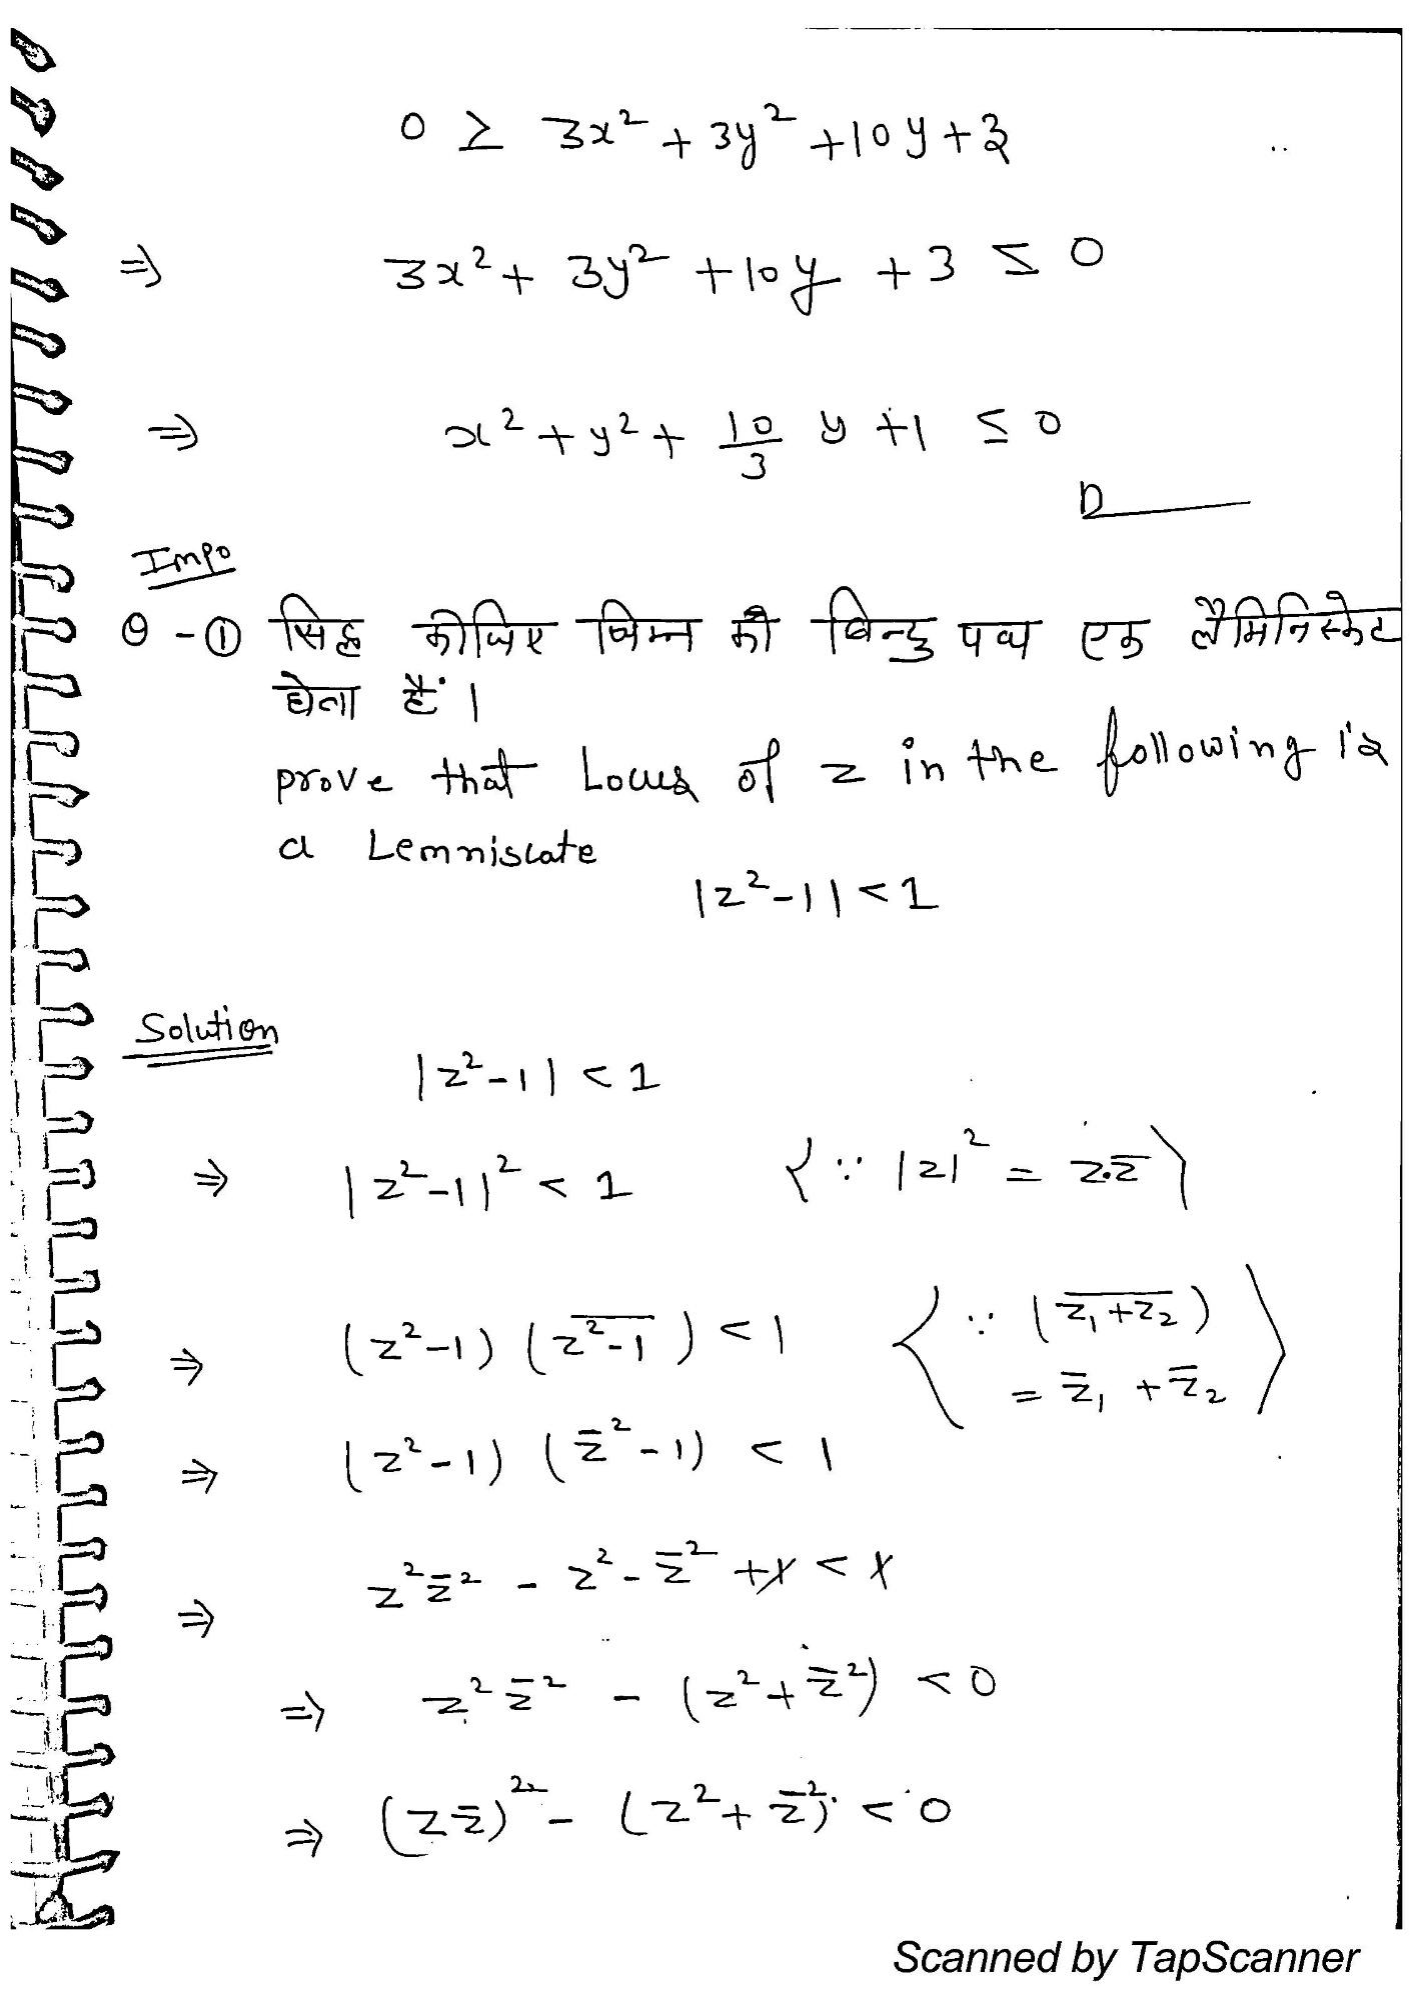 0 ≥ 3x² + 3y² + 10y + 3
⇒ 3x² + 3y² + 10y + 3 ≤ 0
⇒ x² + y² + 10/3 y + 1 ≤ 0
Impo
Q-① सिद्ध कीजिए निम्न की बिन्दु पथ एक लैमिनिस्केट
होता हैं।
prove that Locus of z in the following is
a Lemniscate
|z²-1| < 1
Solution
|z²-1| < 1
⇒ |z²-1|² < 1 {∵ |z|² = z.z̅}
⇒ (z²-1) (\overline{z²-1}) < 1 {∵ (\overline{z₁+z₂})
= z̅₁ + z̅₂}
⇒ (z²-1) (z̅²-1) < 1
⇒ z²z̅² - z² - z̅² + 1 < 1
⇒ z²z̅² - (z² + z̅²) < 0
⇒ (zz̅)² - (z² + z̅²) < 0
Scanned by TapScanner